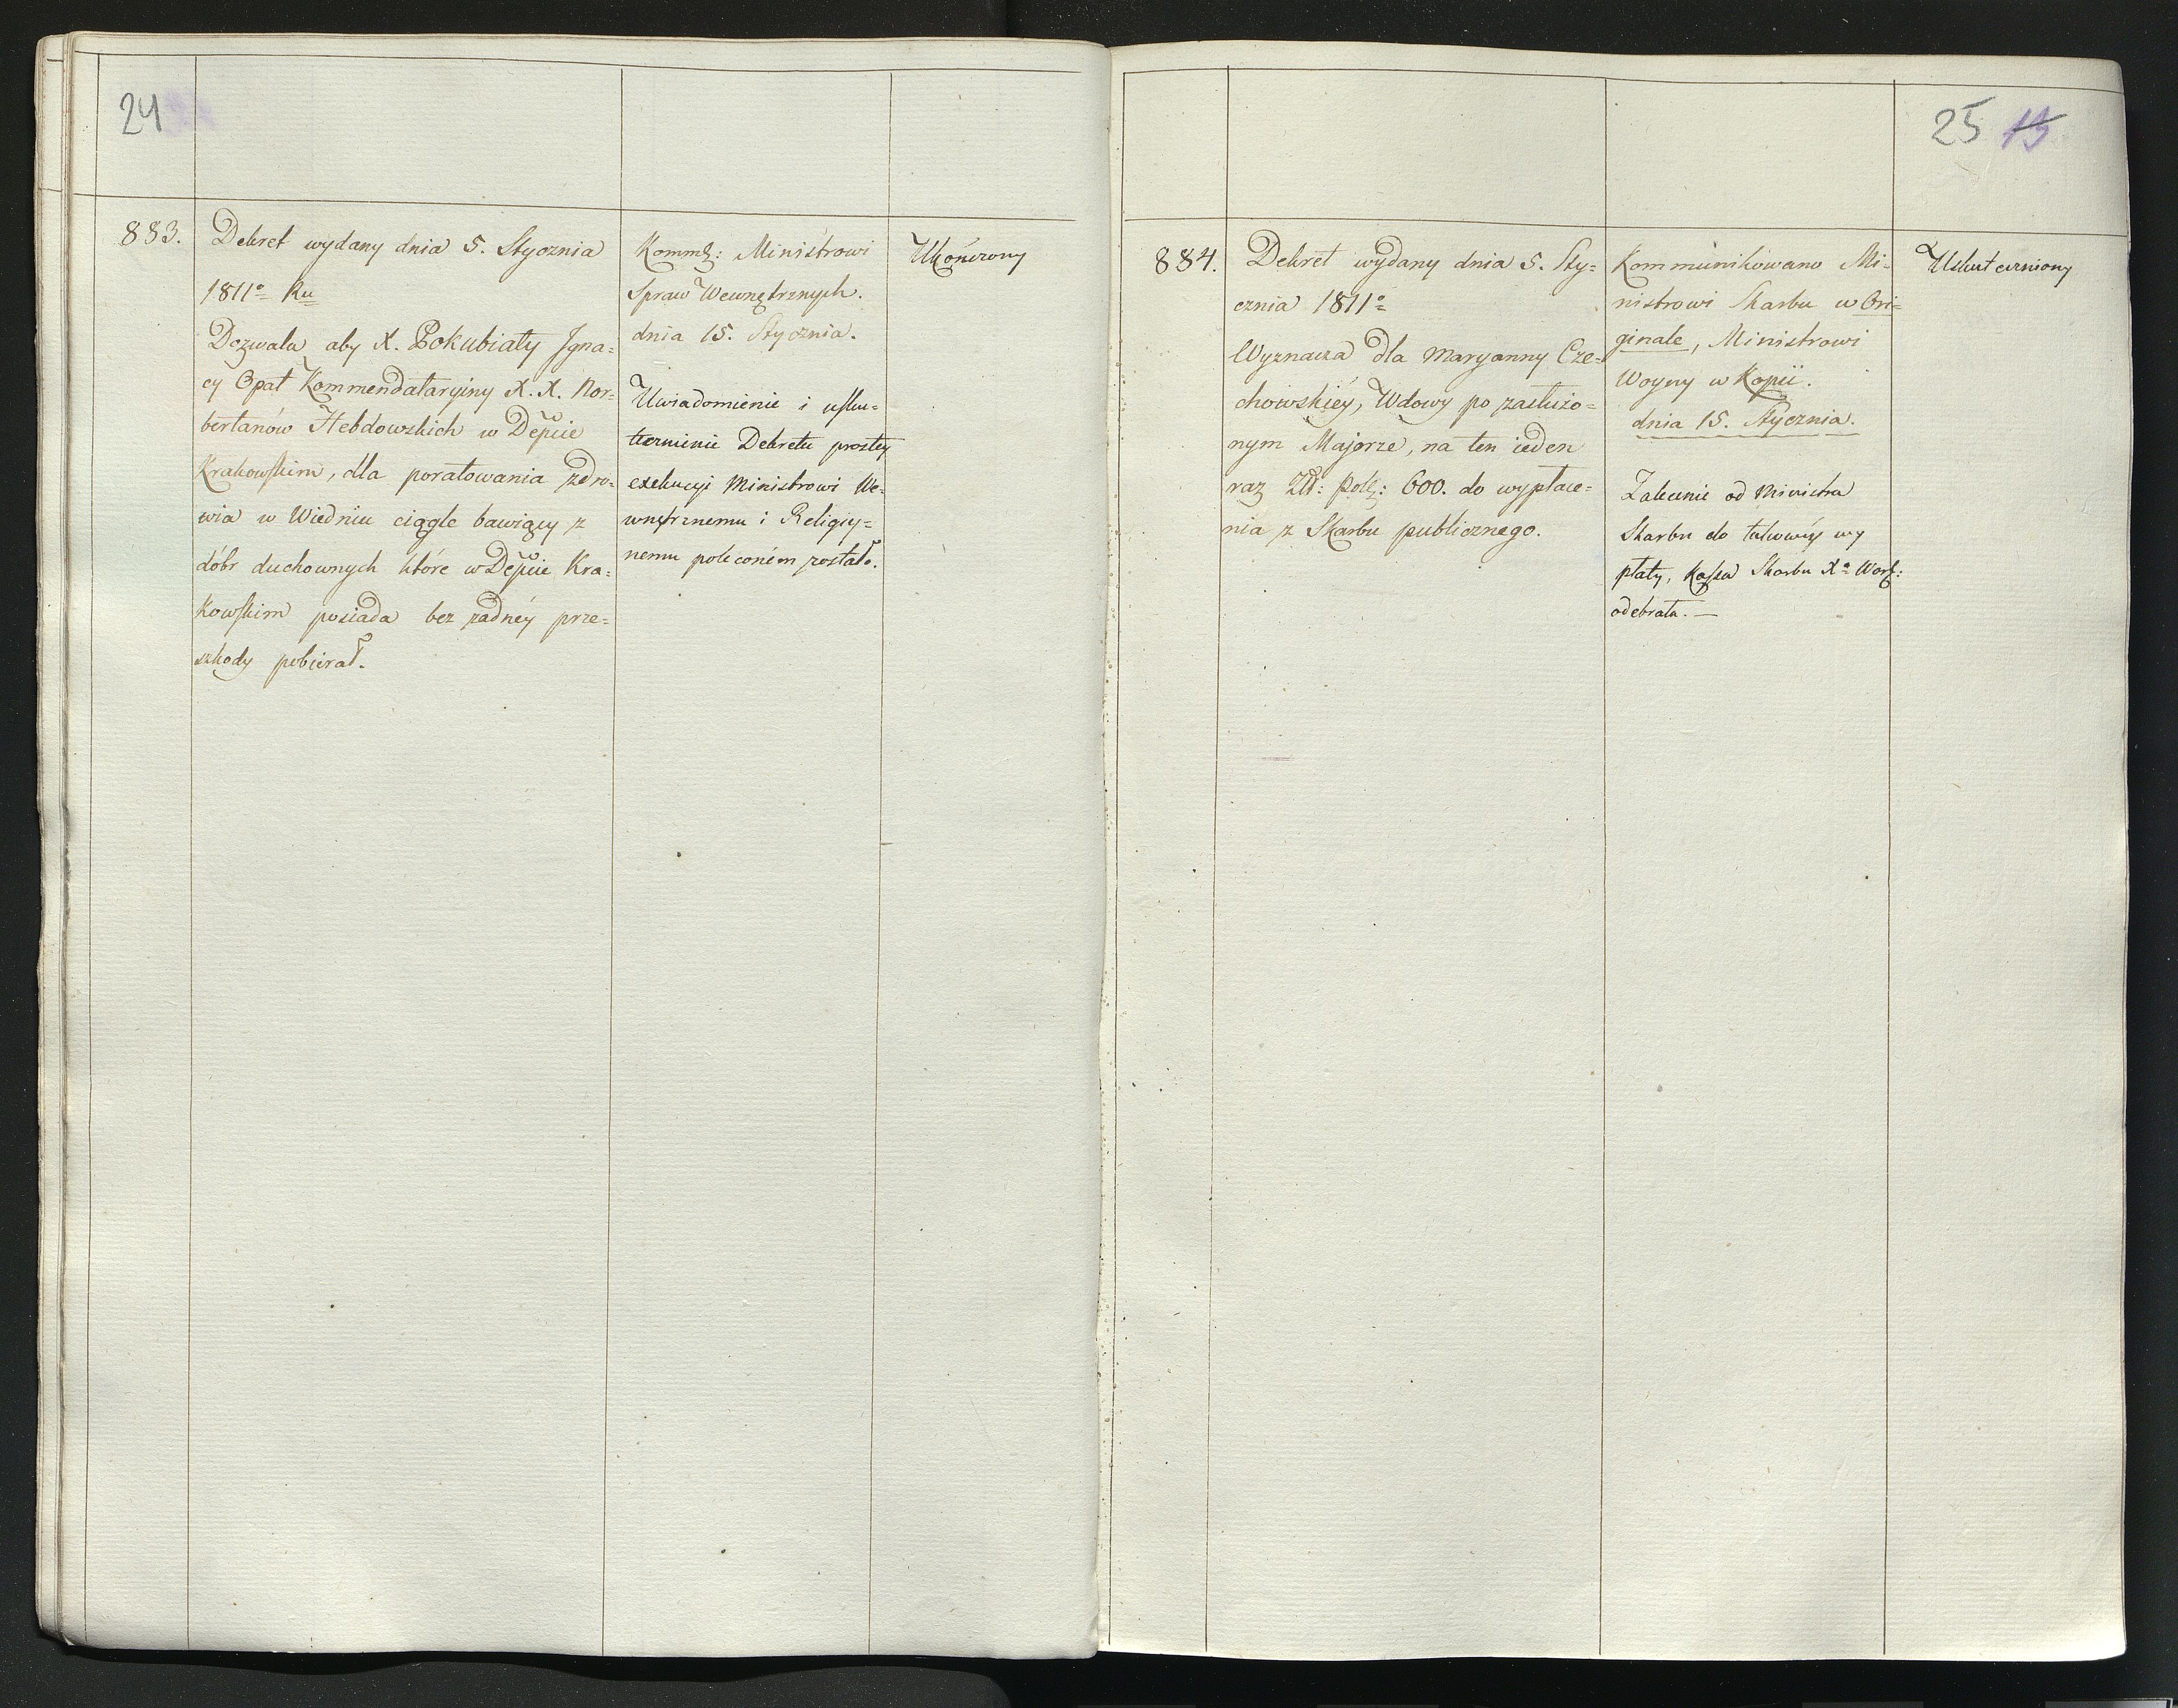 24
883.
Dekret wydany dnia 5. Stycznia
1811o Ru
Dozwala aby X. Pokubiały Igna=
cy Opat Kommendataryiny X. X. Nor=
bertanów Hebdowskich w Depcie
Krakowskim, dla poratowania zdro=
wia w Wiedniu ciągle bawiący z
dóbr duchownych które w Depcie Kra=
kowskim posiada bez żadnéy prze=
szkody pobierał.
Kommk: Ministrowi
Spraw Wewnętrznych.
dnia 15. Stycznia.
Uwiadomienie i usku=
tecznienie Dekretu prostey
exekucyi Ministrowi We=
wnętrznemu i Religiy=
nemu poleconém zostało.
Ukończony
25 13
884.
Dekret wydany dnia 5. Sty=
cznia 1811o
Wyznacza dla Maryanny Cze=
chowskiéy, Wdowy po zasłużo=
nym Majorze, na ten ieden
raz Zł: Pols: 600. do wypłace=
nia z Skarbu publicznego.
Kommunikowano Mi=
nistrowi Skarbu w Ori=
ginale, Ministrowi
Woyny w Kopii.
dnia 15. Stycznia.
Zalecenie od Ministra
Skarbu do takowéy wy
płaty, Kassa Skarbu Xa Wars:
odebrała.—
Uskuteczniony